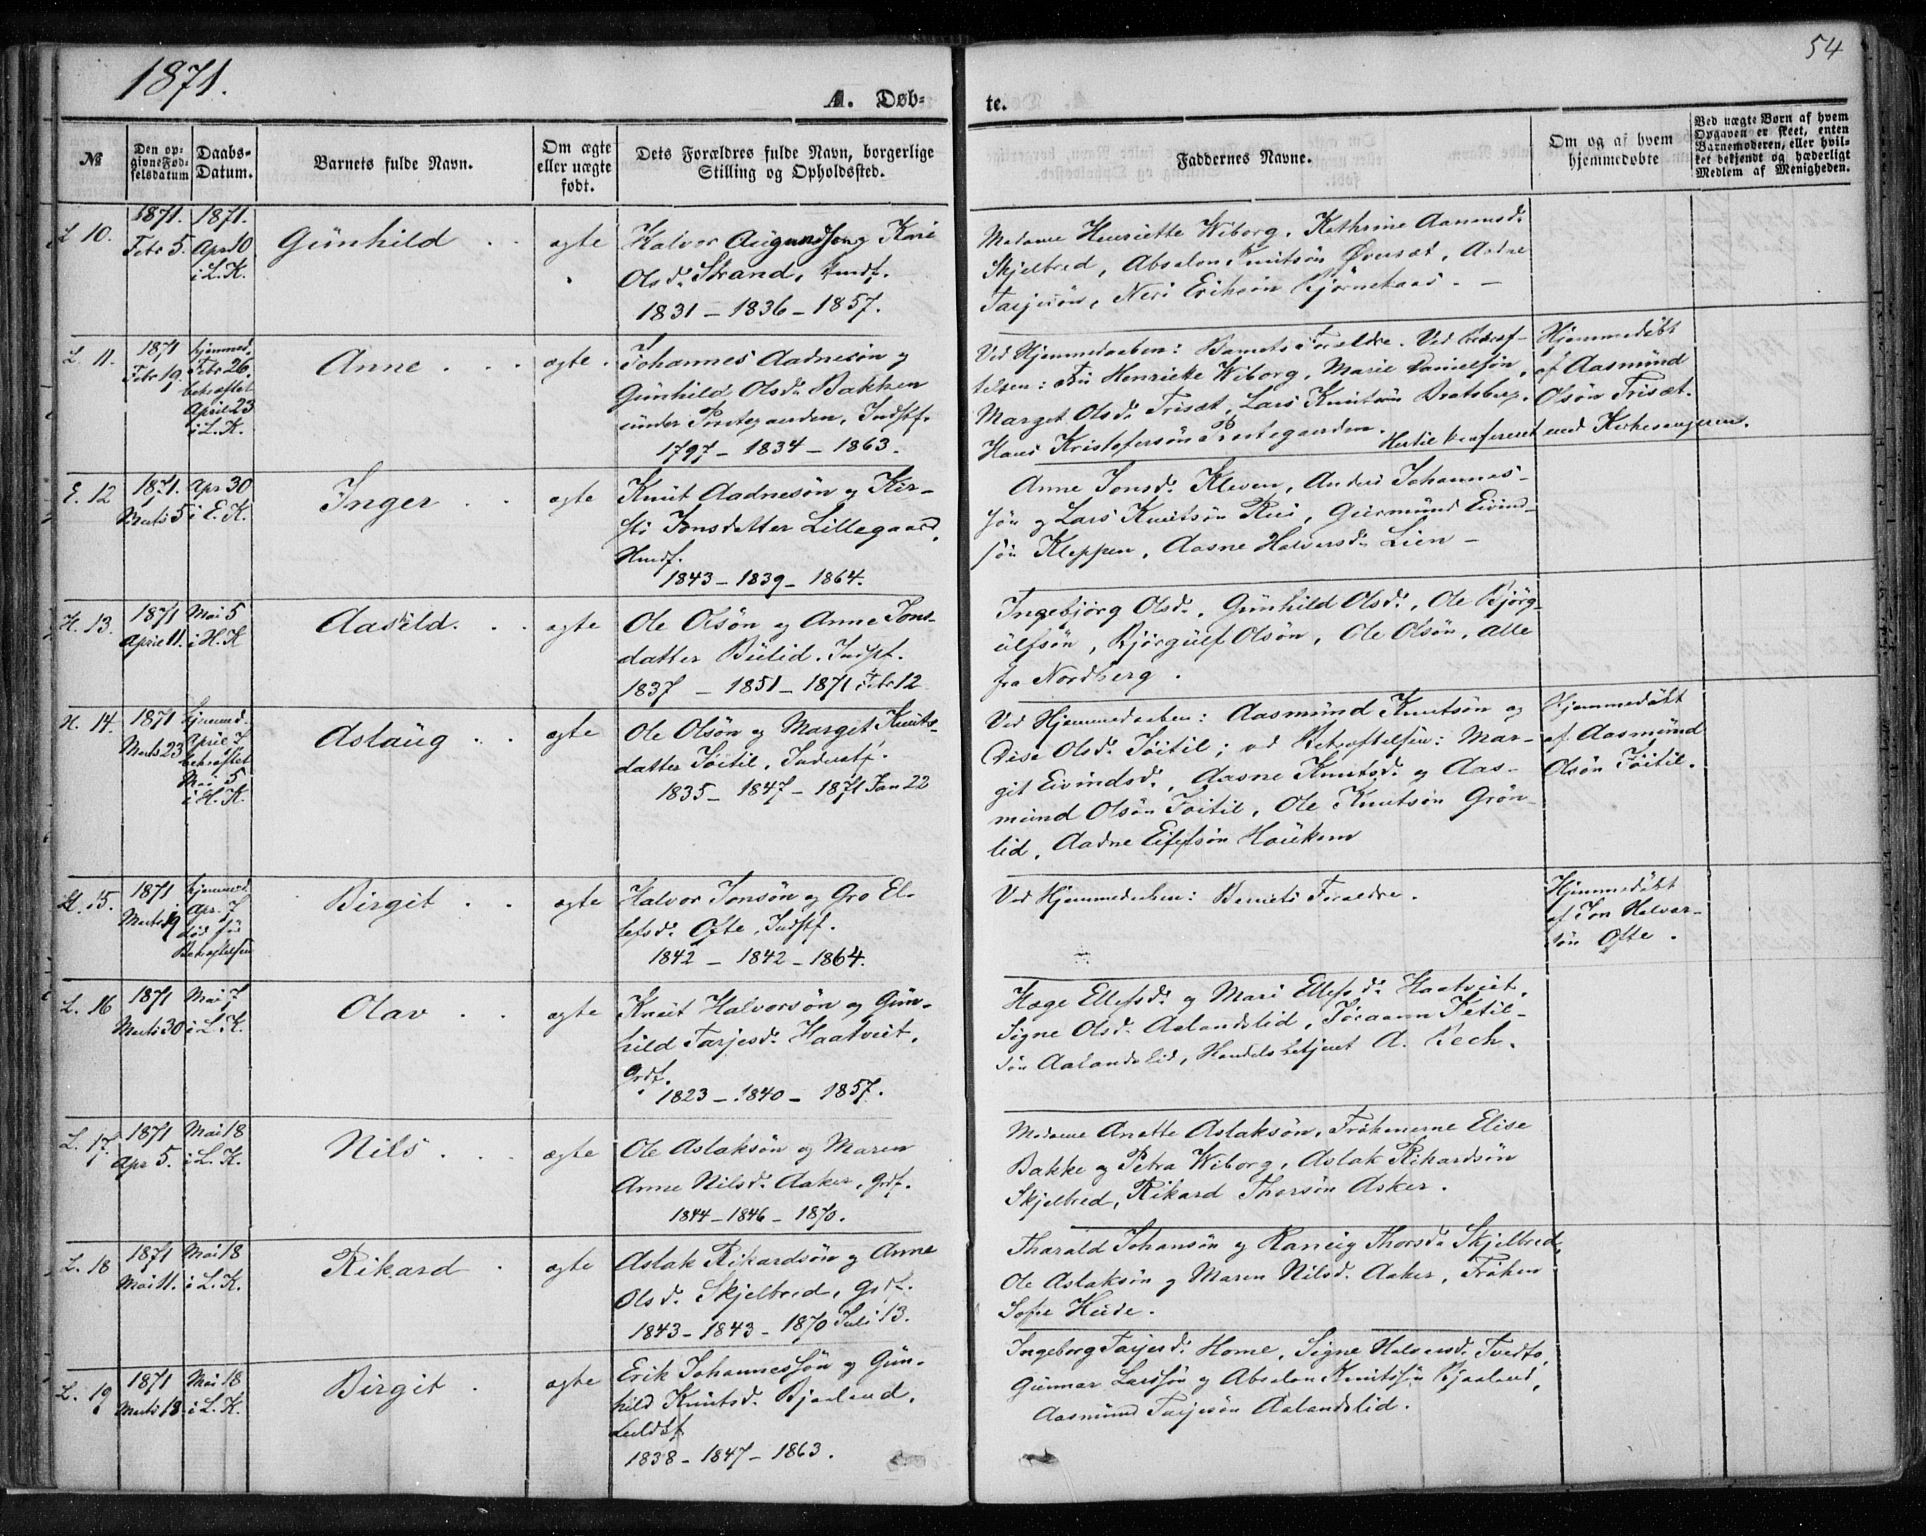 1871.
A. Døb-
te.
54
№
Den op-
givne Fød-
selsdatum
Daabs-
Datum.
Barnets fulde Navn.
Om ægte
eller uægte
født.
Dets Forældres fulde Navn, borgerlige
Stilling og Opholdssted.
Faddernes Navne.
Om og af hvem
hjemmedøbte
Ved uægte Børn af hvem
Opgaven er skeet, enten
Barnemoderen, eller hvil-
ket bekjendt og hæderligt
Medlem af Menigheden.
L 10.
1871.
Febr 5.
1871.
Apr 10
i L. K.
Gunhild
ægte
Halvor Augundson og Kari
Olsd. Strand, Hmdf.
1831 – 1836 – 1857.
Madame Henriette Wiborg, Kathrine Aanunsd.
Skjelbred, Absalon Knutsøn Øversæt, Aadne
Tarjesøn, Neri Eriksøn Bjørnekaas. –
L. 11.
1871
Febr 19.
hjemmed.
Febr 26.
bekræftet
April 23
i L. K.
Anne
ægte.
Johannes Aadnesøn og
Gunhild Olsd. Bakken
under Prestegaarden, Indstf.
1797 – 1834 – 1863.
Ved Hjemmedaaben: Barnets Forældre. Ved Bekræf-
telsen: Fru Henriette Wiborg, Marie Danielsøn,
Marget Olsd. Trisæt, Lars Knutsøn Bratsberg,
Hans Kristofersøn Prestegaarden.
Hertil konfereret med Kirkesangeren.
Hjemmedøbt
af Aasmund
Olsøn Trisæt.
E. 12
1871.
Marts 5
Apr 30
i E. K.
Inger
ægte
Knut Aadnesøn og Kir-
sti Jonsdatter Lillegaard,
Hmdf.
1843 – 1839 – 1864.
Anne Jonsd. Kleven, Anders Johannes-
søn og Lars Knutsøn Rui, Guermund Eivind-
søn Kleppen, Aasne Halvorsd. Lien –
H. 13.
1871
April 11.
Mai 5
i H. K
Aasild.
ægte
Ole Olsøn og Anne Jons-
datter Bulid. Indst.
1837 – 1851 – 1871 Febr 12
Ingebjørg Olsd., Gunhild Olsd., Ole Bjørg-
ulfsøn, Bjørgulf Olsøn, Ole Olsøn, alle
fra Nordberg.
H. 14.
1871
Marts 23
hjemmed.
April 7
bekræftet
Mai 5
i H. K.
Aslaug
ægte
Ole Olsøn og Marget Knuts-
datter Føitil, Inderstf.
1835 – 1847 – 1871 Jan 22
Ved Hjemmedaaben: Aasmund Knutsøn og
Dise Olsd. Føitil; ved Bekræftelsen: Mar-
git Eivindsd., Aasne Knutsd. og Aas-
mund Olsøn Føitil, Ole Knutsøn Grøn-
lid, Aadne Eilefsøn Haukom
Hjemmedøbt
af Aasmund
Olsøn Føitil.
H. 15.
1871
Marts 19
hjemmed.
Apr. 7
død før
Bekræftelsen
Birgit
ægte
Halvor Jonsøn og Gro El-
lefsd. Ofte, Indstf.
1842 – 1842 – 1864.
Ved Hjemmedaaben: Barnets Forældre.
Hjemmedøbt
af Jon Halvor-
søn Ofte.
L. 16
1871
Marts 30
Mai 7
i L. K.
Olav
ægte
Knut Halvorsøn og Gun-
hild Tarjesd. Haatveit,
Grdf.
1823 – 1840 – 1857.
Hæge Ellefsd. og Mari Ellefsd. Haatveit,
Signe Olsd. Aalandslid, Tøraann Ketil-
søn Aalandslid, Handelsbetjent A. Bech.
L. 17.
1871
Apr 5.
Mai 18
i L. K.
Nils
ægte
Ole Aslaksøn og Maren
Anne Nilsd. Aaker, Grdf.
1844 – 1846 – 1870.
Madame Anette Aslaksøn, Frøknerne Elise
Bakke og Petra Wiborg, Aslak Rikardsøn
Skjelbred, Rikard Thorsøn Aaker.
L. 18
1871
Mai 11.
Mai 18
i L. K.
Rikard
ægte
Aslak Rikardsøn og Anne
Olsd. Skjelbred, Grdf.
1843 – 1843 – 1870 Juli 13.
Tharald Johansøn og Raneig Thorsd. Skjelbred,
Ole Aslaksøn og Maren Nilsd. Aaker, Frøken
Sofie Heide.
L. 19
1871
Marts 18
Mai 18
i L. K.
Birgit
ægte
Erik Johannessøn og Gun-
hild Knutsd. Bjaaland,
1838 – 1847 – 1863.
Ingeborg Tarjesd. Home, Signe Halvorsd. Tvedto,
Gunnar Larssøn og Absalon Knutssøn Bjaaland,
Aasmund Tarjesøn Aalandslid.